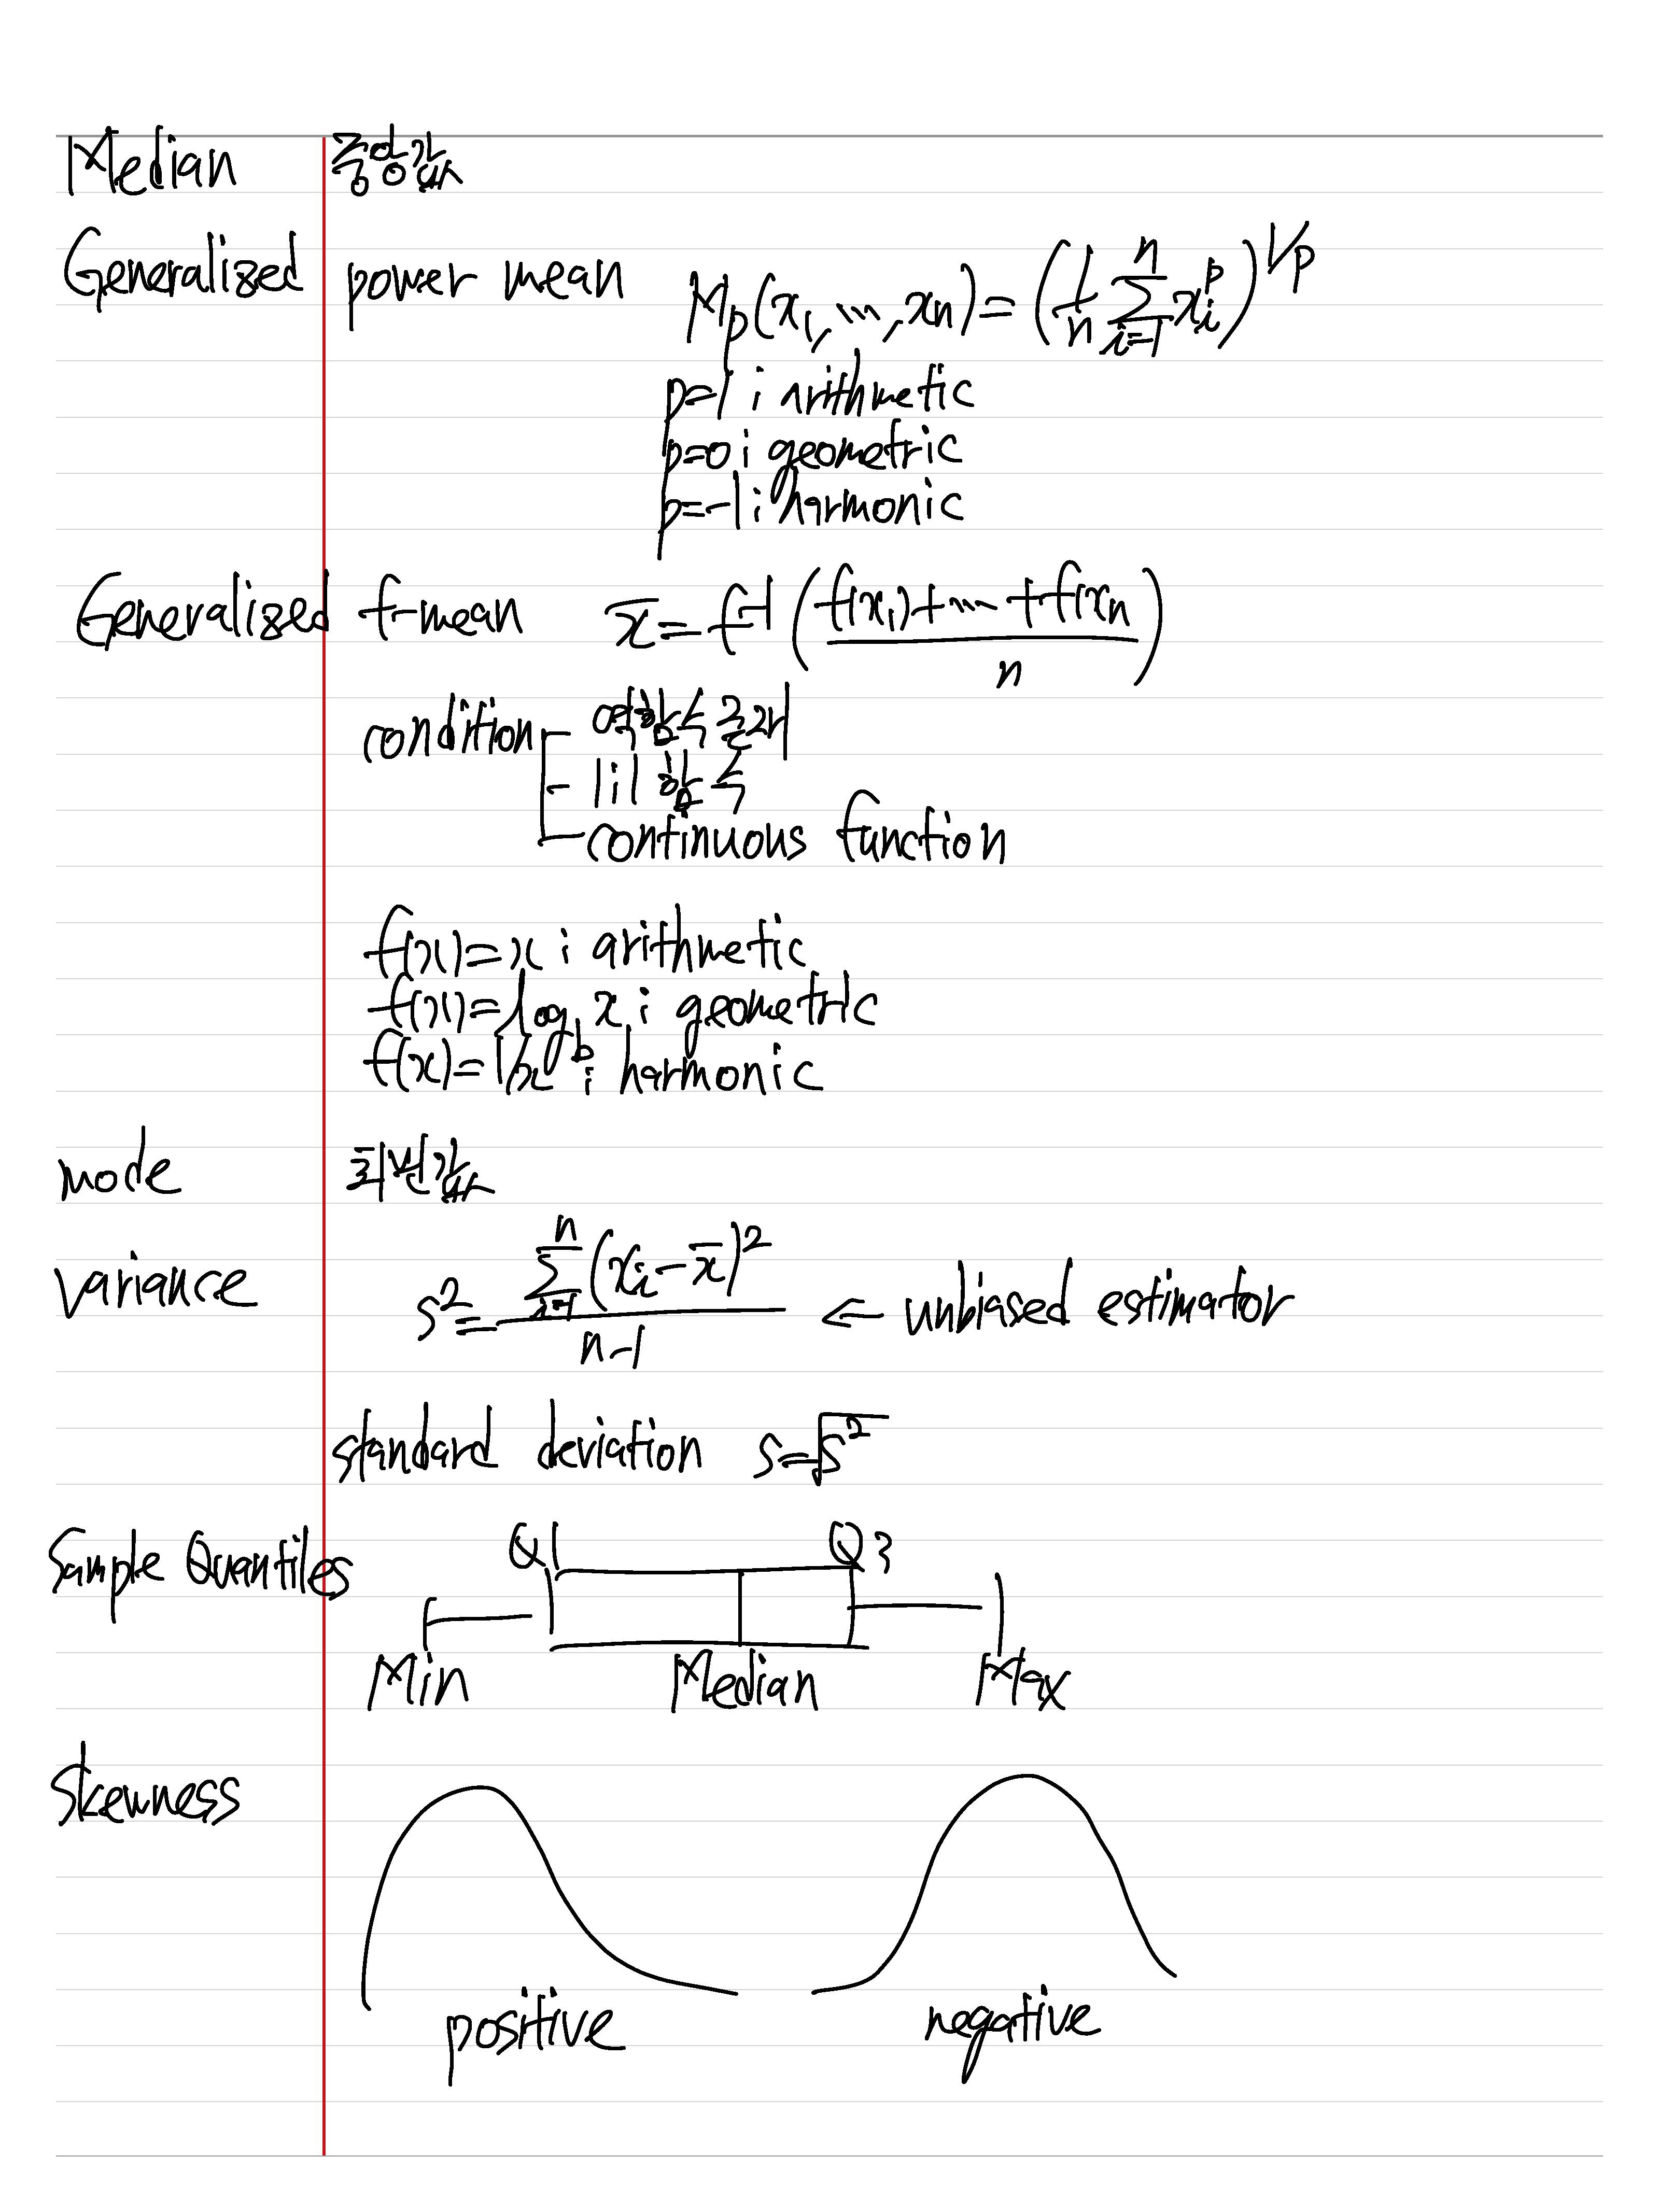 Median 중앙값
Generalized power mean Mp(x1, ..., xn) = (1/n Σ_{i=1}^{n} x_i^p)^{1/p}
p=1 : arithmetic
p=0 : geometric
p=-1 : harmonic
Generalized f-mean x̄ = f^{-1}((f(x1)+...+f(xn)/n)
condition - 역함수 존재
- 1:1 함수
- continuous function
f(x)=x : arithmetic
f(x)=log_b x : geometric
f(x)=1/x : harmonic
mode 최빈값
variance s² = Σ_{i=1}^{n}(xi-x̄)² / n-1 ← unbiased estimator
standard deviation s=√s²
Sample Quantiles Q1 Q3
Min Median Max
Skewness
positive negative